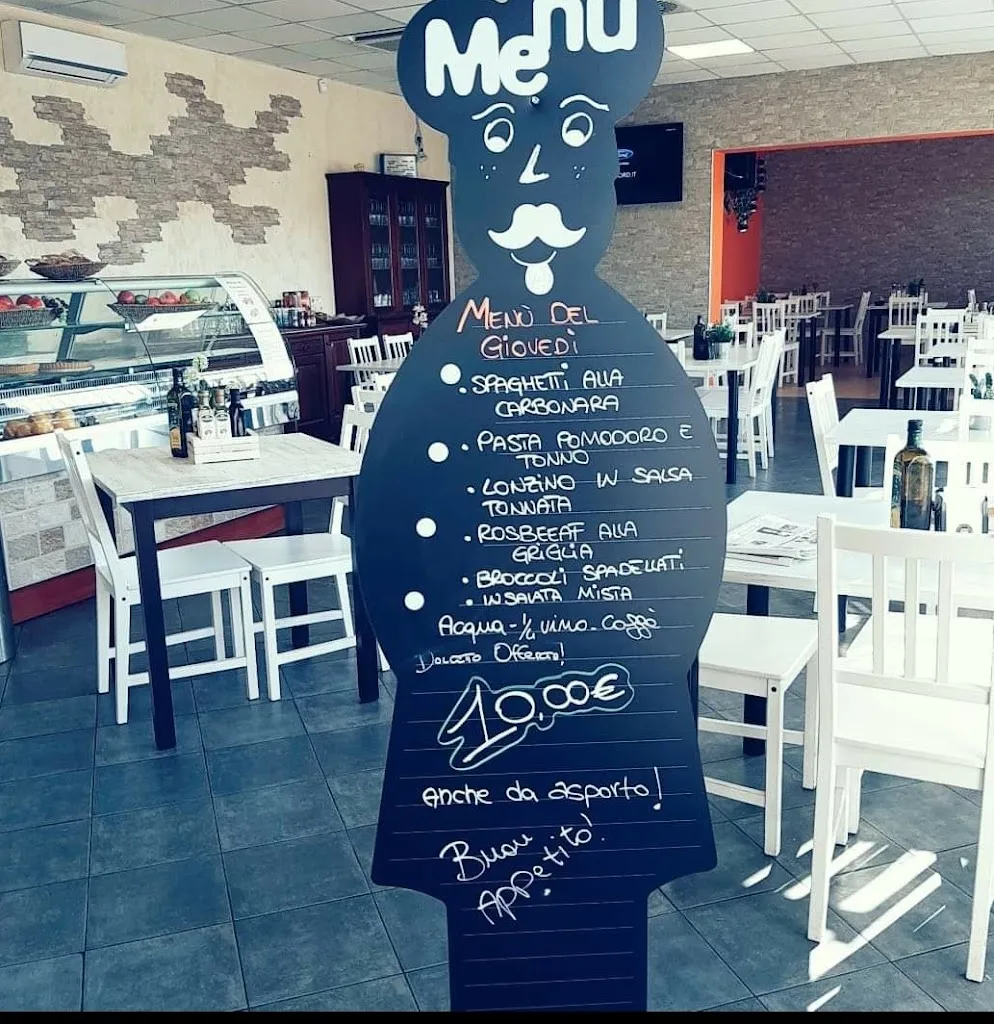 Menu
MENÙ DEL
GIOVEDÌ
• SPAGHETTI ALLA
CARBONARA
• PASTA POMODORO E
TONNO
• LONZINO IN SALSA
TONNATA
• ROSBEEAF ALLA
GRIGLIA
• BROCCOLI SPADELLATI
• INSALATA MISTA
ACQUA - 1/4 VINO - Caffè
DOLCETO OFFERTO!
10,00€
Anche da asporto!
Buon
Appetito!
Ford